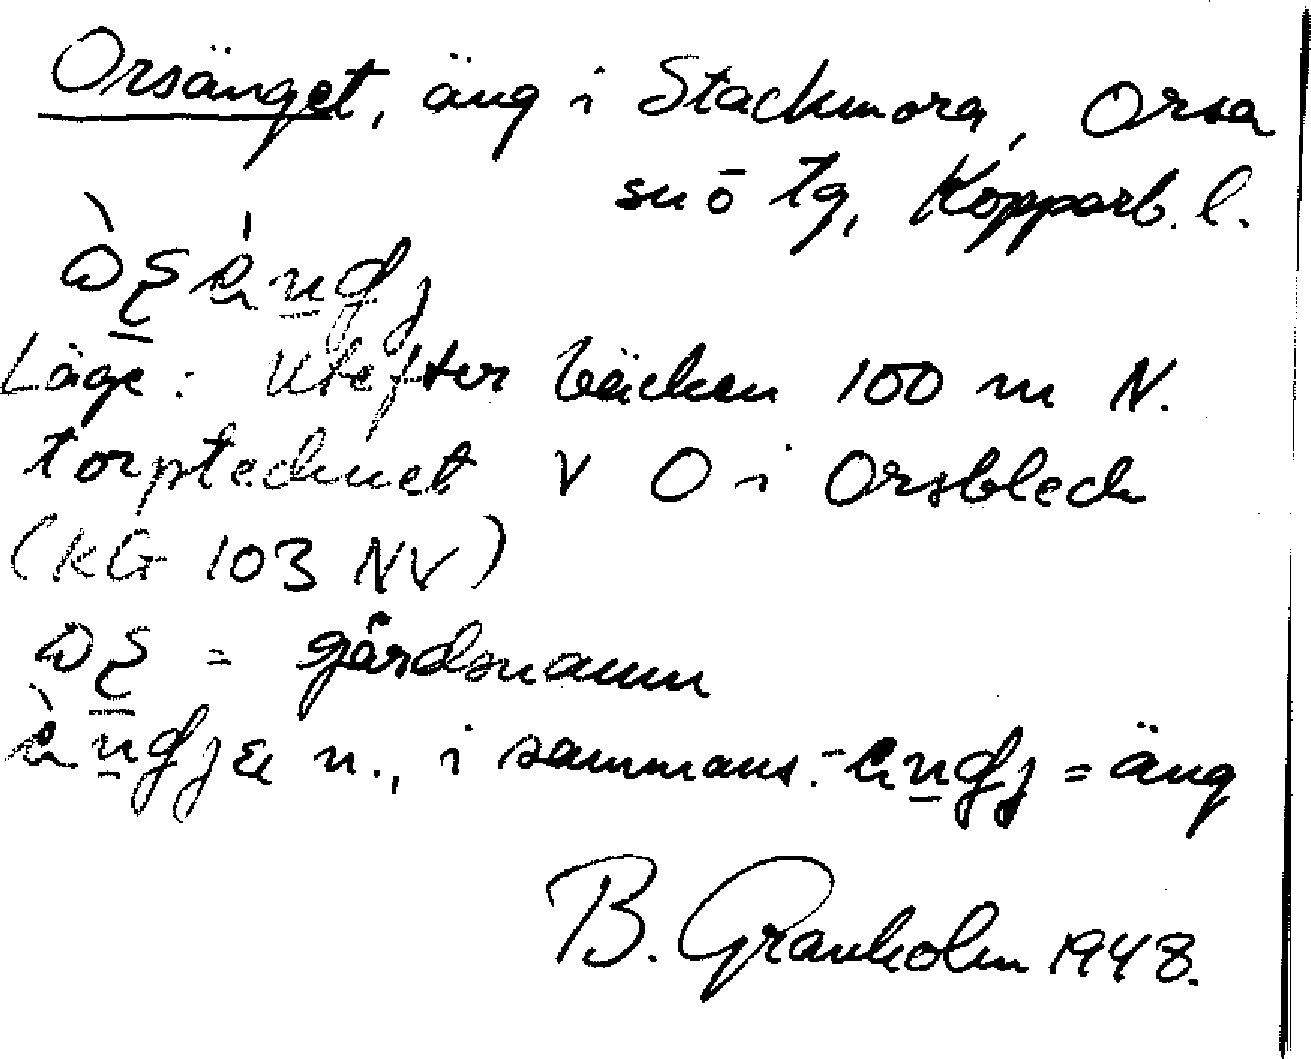 Orsänget, äng i Stackmora, Orsa
sn ö tg, Kopparb. l.
Läge: Utefter bäcken 100 m N.
torptecknet v O i Orsbleck
(KG 103 NV)
= gårdsnamn
n., i sammans. = äng
B. Granholm 1948.